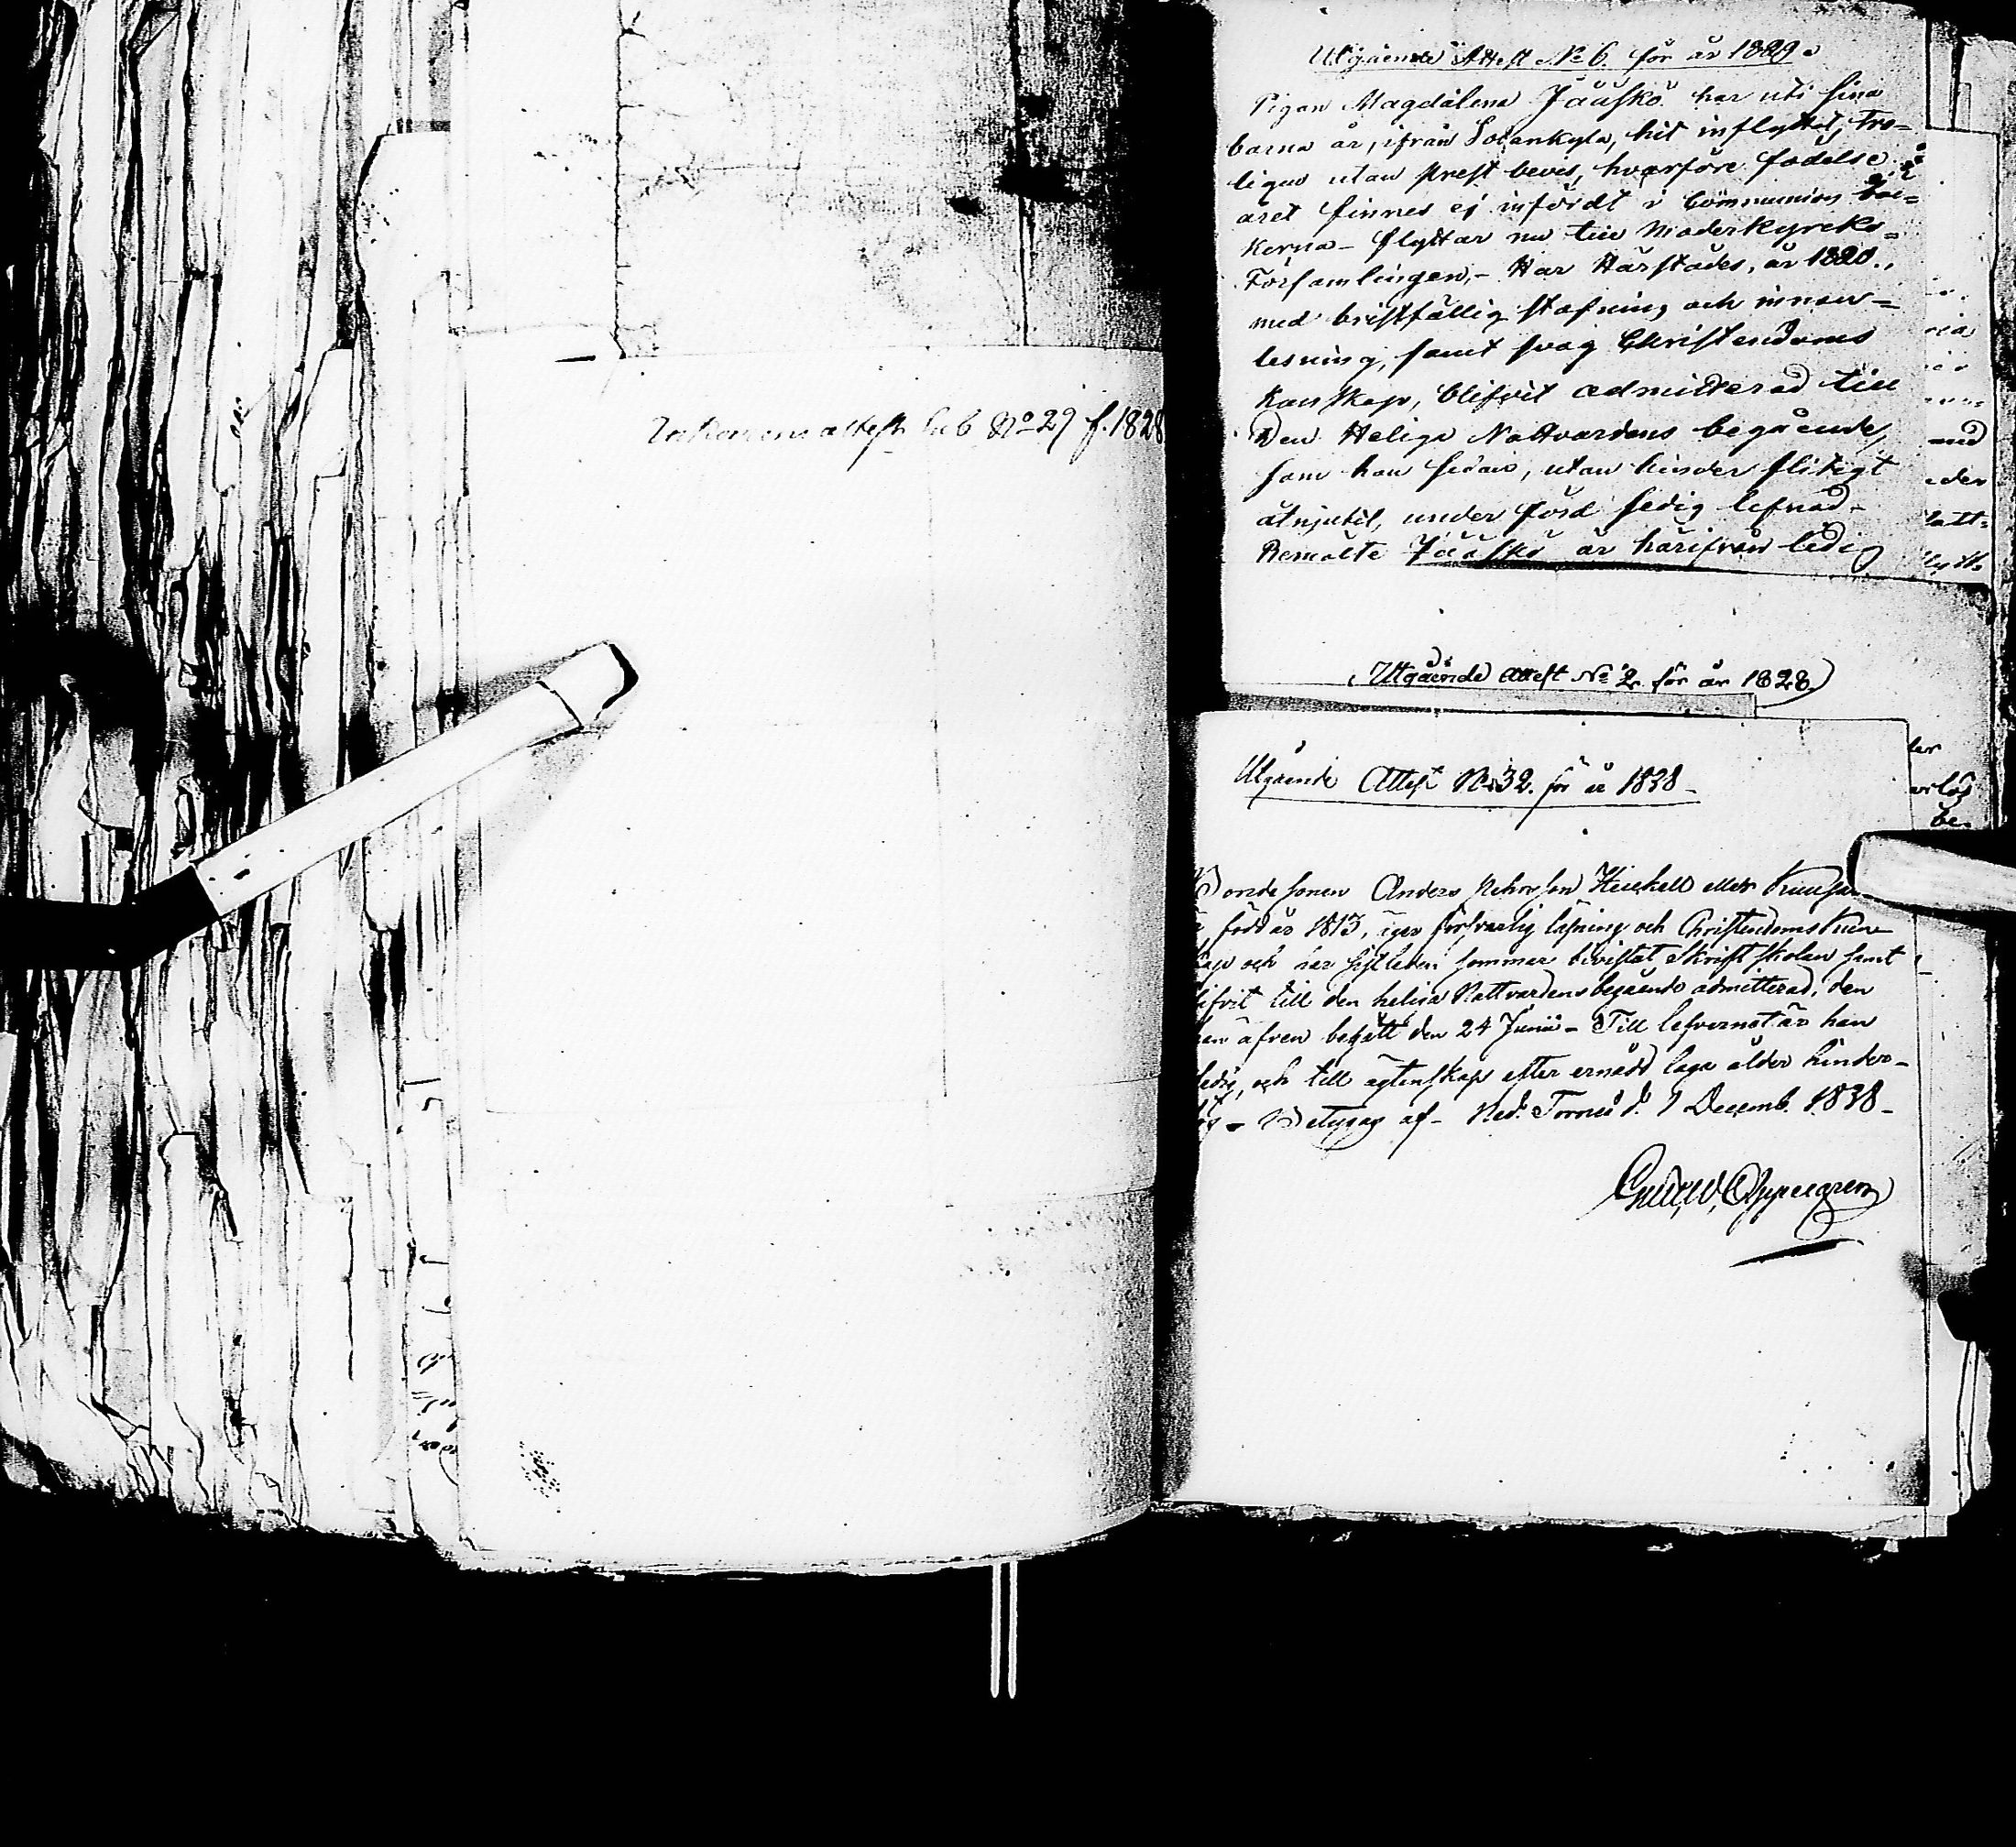 Inkommen attest sub No 29 f. 1828
Utgående Attest No 6. för år 1829.
Pigan Magdalena Jääskö har uti sina
barna år, ifrån Sodankylä, hit inflyttat, tro-
ligen utan prest bevis, hvarföre födelse
året finnes ej infördt i Communion böc-
kerna - flyttar nu till Moderkyrko-
Församlingen, - Har Härstädes, år 1820.,
med bristfällig stafning och innan-
lesning, samt svag Christendoms
kunskap, blifvit admitterad till
Den Heliga Nattvardens begående,
som hon sedan, utan hinder flitigt
åtnjutit, under förd sedig lefnad-
Bemälte Jääskö är härifrån ledig
Utgående attest No 2. för år 1828.
Utgående Attest No 32. för år 1838 -
Bondesonen Anders eller
född år 1813, äger försvarlig läsning och Christendoms kun-
kap och har sistleden sommar bivistat Skriftskolan samt
lifvit till den heliga Nattvardens begående admitterad, den
han äfven begått den 24 Junii - Till lefvernet är han
sedig, och till ägtenskap efter ernådd laga ålder hinder-
- Betygas af - Ned. Torneå d. 1 Decemb. 1838 -
Appelgren
ler
be-
med
eder
latt-